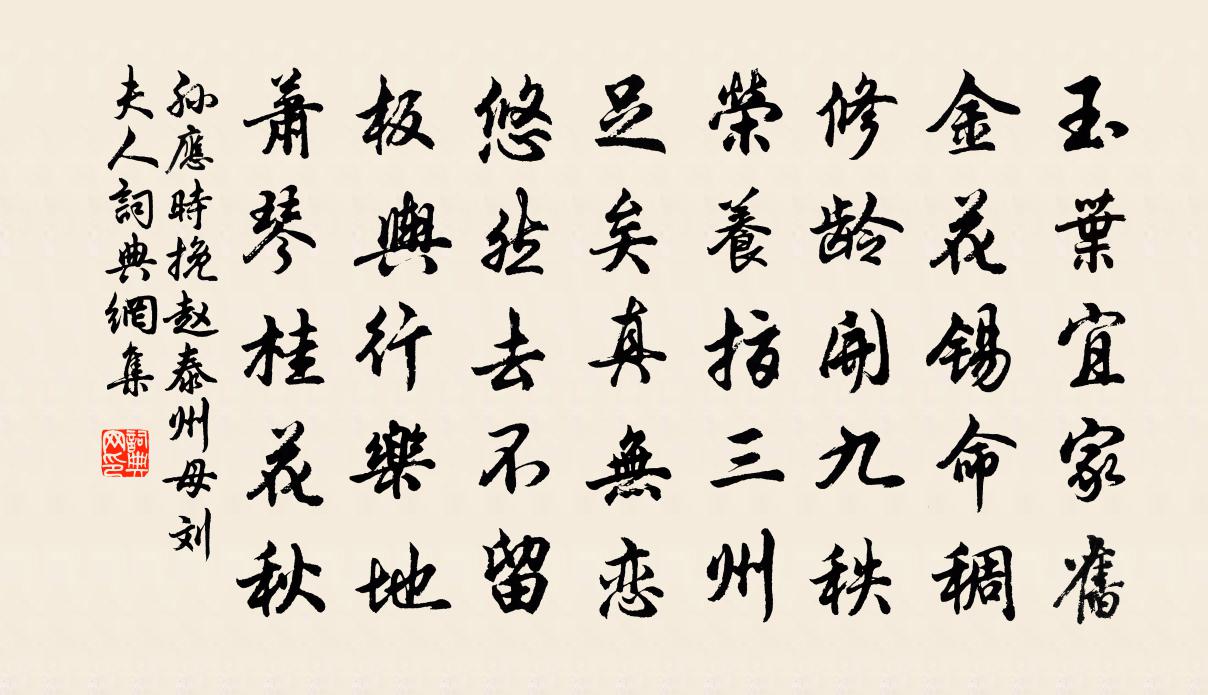 玉葉宜家舊
金花錫命稠
修齡開九秩
榮養指三州
足矣真無恋
悠然去不留
板輿行樂地
萧琴桂花秋
孙應時挽赵泰州母刘
夫人詞典網集
詞典网印